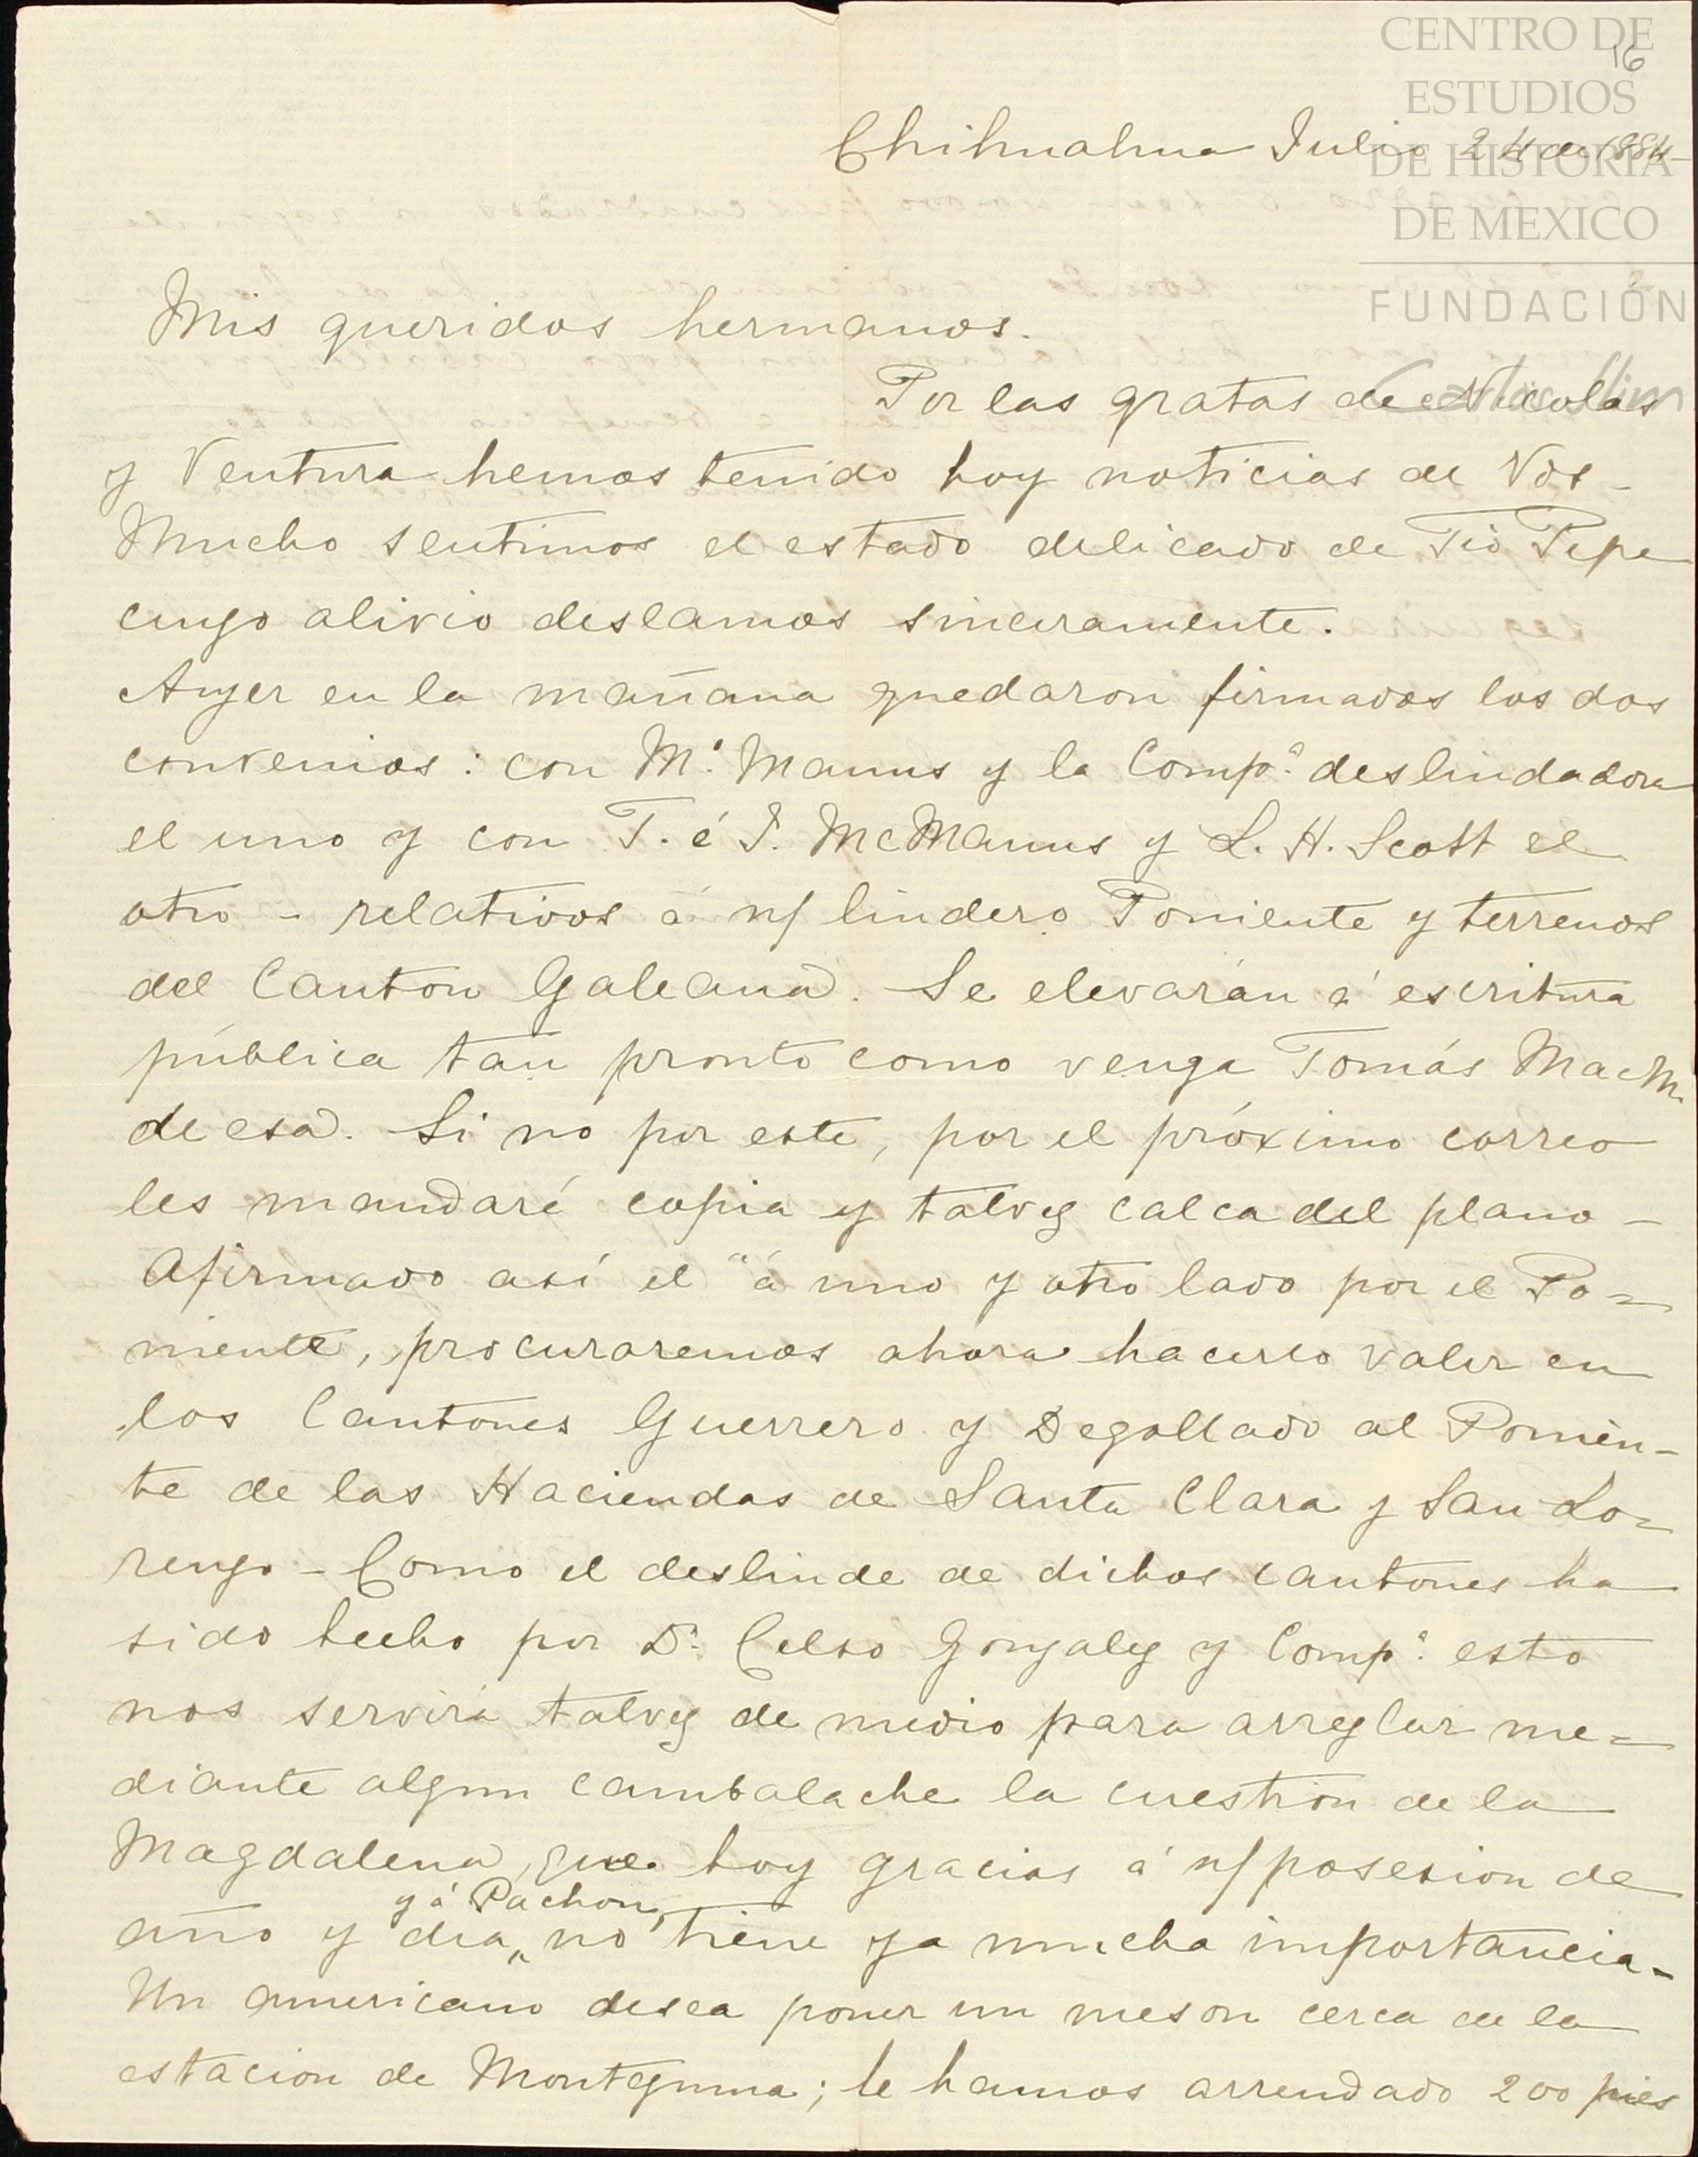 CENTRO DE
ESTUDIOS
DE HISTORIA
DE MEXICO
FUNDACIÓN
Carlos Slim
16
Chihuahua Julio 24 de 1884
Mis queridos hermanos.
Por las gratas de Nicolás
y Ventura hemos tenido hoy noticias de Vds-
Mucho sentimos el estado delicado de Tio Pepe
cuyo alivio deseamos sinceramente.
Ayer en la mañana quedaron firmados los dos
convenios: con Mc. Manus y la Compª. deslindadora
el uno y con T. é I. McManus y L. H. Scott el
otro - relativos á n/ lindero Poniente y terrenos
del Canton Galeana. Se elevarán á escritura
pública tan pronto como venga Tomás MacM.
de esa. Si no por este, por el próximo correo
les mandaré copia y talvez calca del plano -
Afirmado así el "á uno y otro lado por el Po=
niente, procuraremos ahora hacerlo valer en
los Cantones Guerrero y Degollado al Ponien-
te de las Haciendas de Santa Clara y San Lo=
renzo - Como el deslinde de dichos cantones ha
sido hecho por Dn. Celso Gonzalez y Compª. esto
nos servirá talvez de medio para arreglar me=
diante algun cambalache la cuestion de la
Magdalena, que hoy gracias á n/ posesion de
y á Pachon,
año y dia, no tiene ya mucha importancia-
Un americano desea poner un meson cerca de la
estacion de Montezuma; le hemos arrendado 200 pies